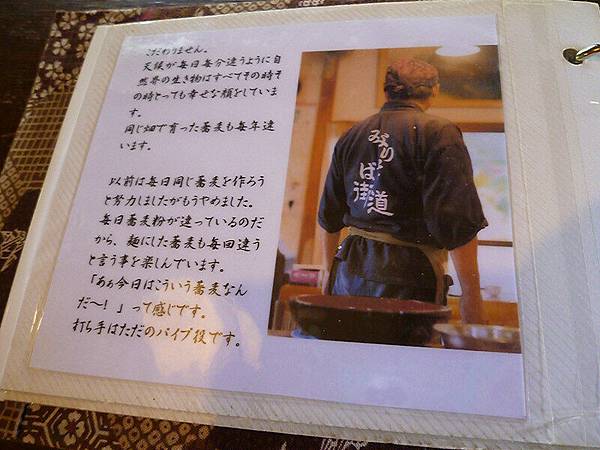 こだわりません。
天候が毎日毎分違うように自
然界の生き物はすべてその時そ
の時とっても幸せな顔をしていま
す。
同じ畑で育った蕎麦も毎年違
います。
以前は毎日同じ蕎麦を作ろう
と努力しましたがもうやめました。
毎日蕎麦粉が違っているのだ
から、麺にした蕎麦も毎回違う
と言う事を楽しんでいます。
「あぁ今日はこういう蕎麦なん
だ～！」って感じです。
打ち手はただのパイプ役です。
そば街道